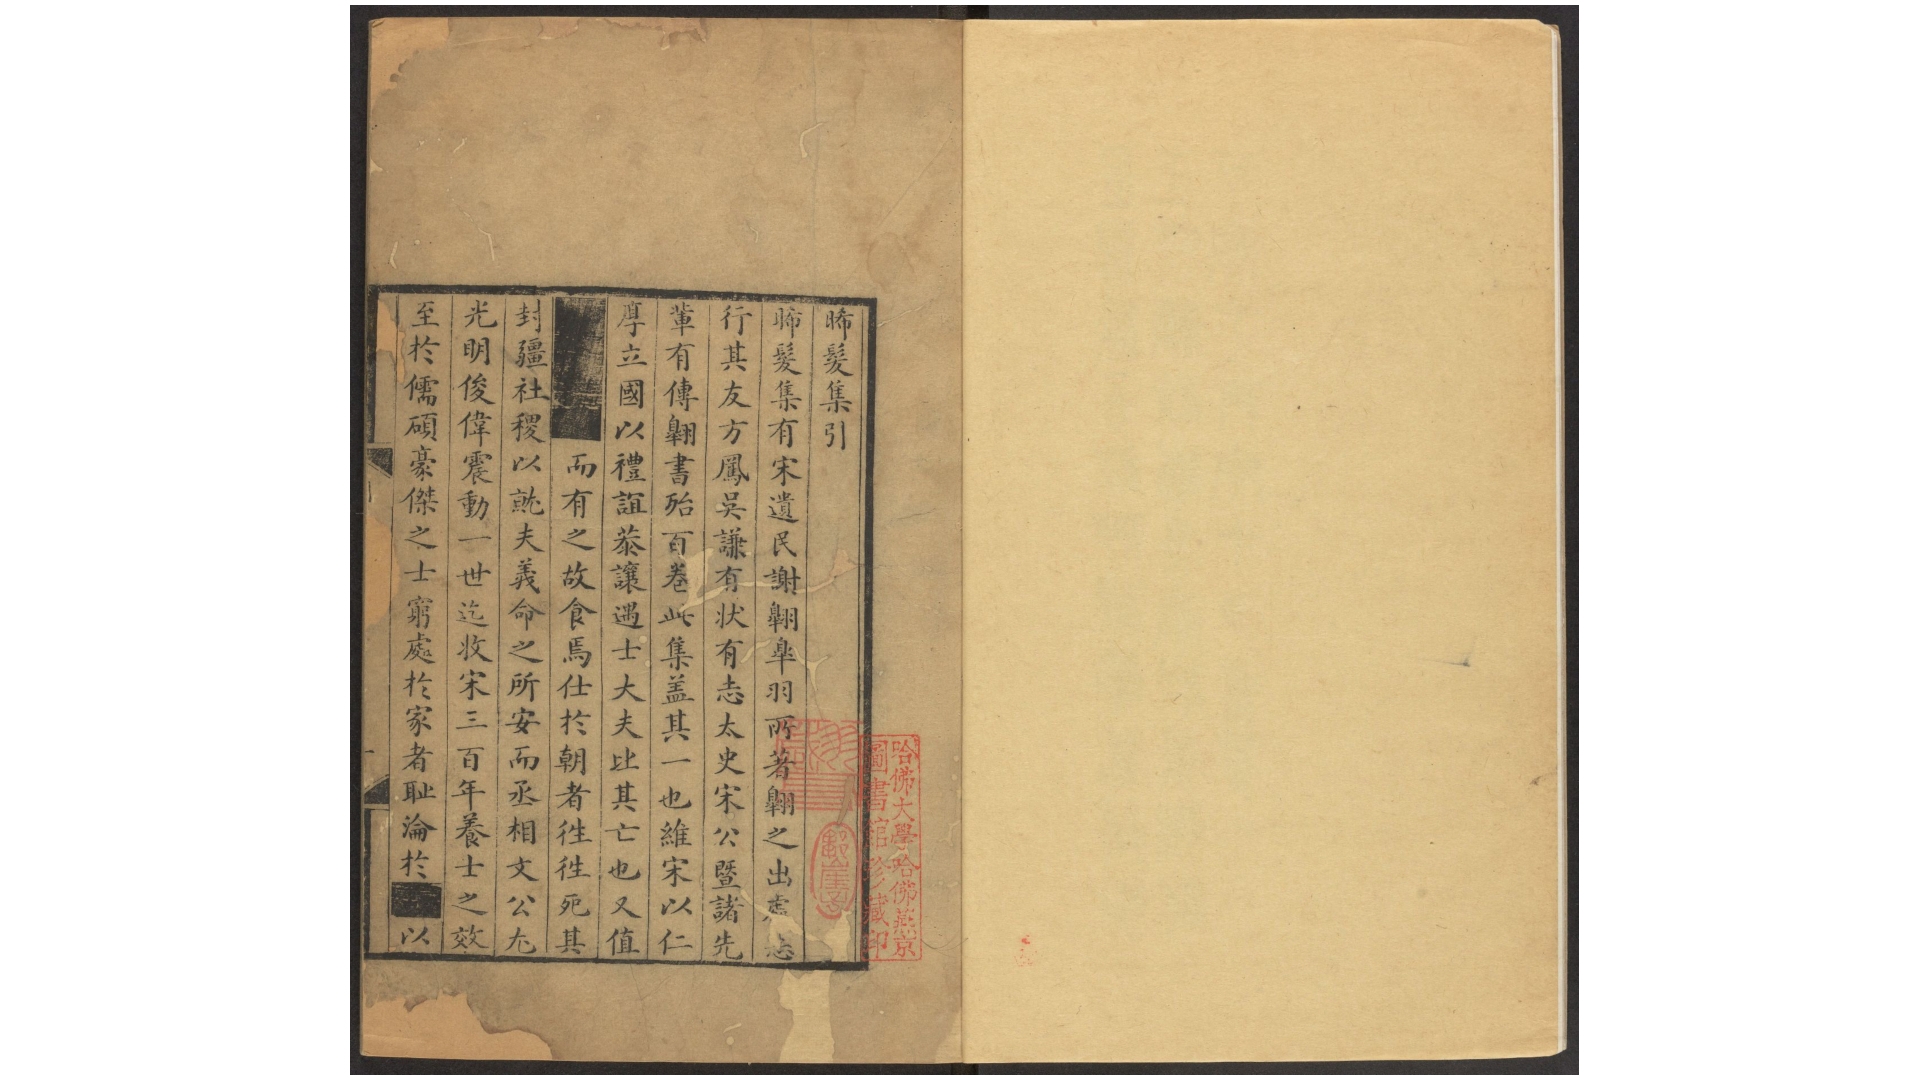 晞髮集引
晞髮集有宋遺民謝翶臯羽所著翶之出處志
行其友方鳳吳謙有狀有志太史宋公曁諸先
軰有傳翶書殆百卷此集盖其一也維宋以仁
厚立國以禮誼㳟讓遇士大夫比其亡也又值
而有之故食焉仕於朝者徃徃死其
封疆社稷以就夫義命之所安而丞相文公尢
光明俊偉震動一世迄收宋三百年養士之效
至於儒碩豪傑之士窮處於家者耻淪於
以
哈佛大學哈佛燕京
圖書館珍藏印